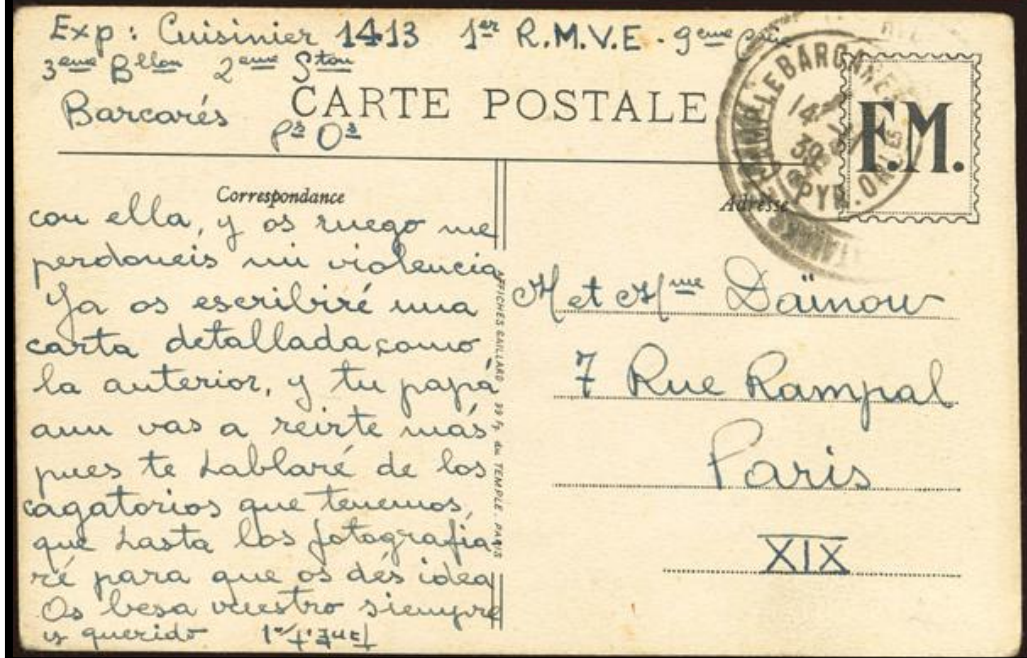 Exp: Cuisinier 1413 1er R.M.V.E - 9eme Cie
3eme Bllon 2eme Ston
Barcarés
Pes Oes
CARTE POSTALE
F.M.
CAMP LE BARCARES
14
39
PYR. ORles
Correspondance
Adresse
con ella, y os ruego me
perdoneis mi violencia
Ya os escribiré una
carta detallada, como
la anterior, y tu papá
aun vas a reirte más
pues te hablaré de los
cagatorios que tenemos,
que hasta los fotografia-
ré para que os dés idea
Os besa vuestro siempre
y querido
AFFICHES GAILLARD, 99 Fg. du TEMPLE. PARIS
M et Mme Daïnow
7 Rue Rampal
Paris
XIX